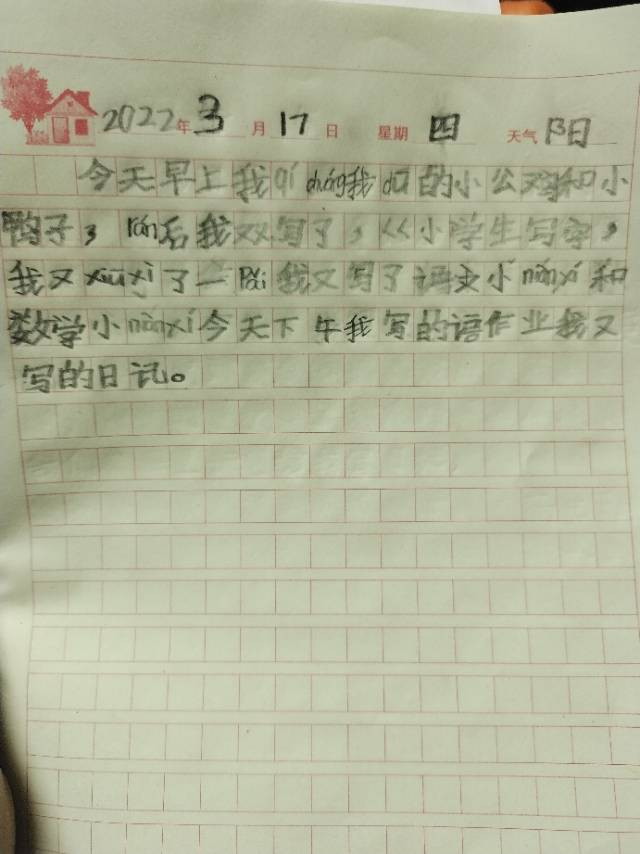 2022年3月17日 星期四 天气阳
今天早上我qí cháng我dú的小公鸡和小
鸭子，rán后我又写了，《小学生写字，
我又xiūxì了一 我又写了语文小nǎnxí和
数学小nǎnxí今天下午我写的语作业我又
写的日记。